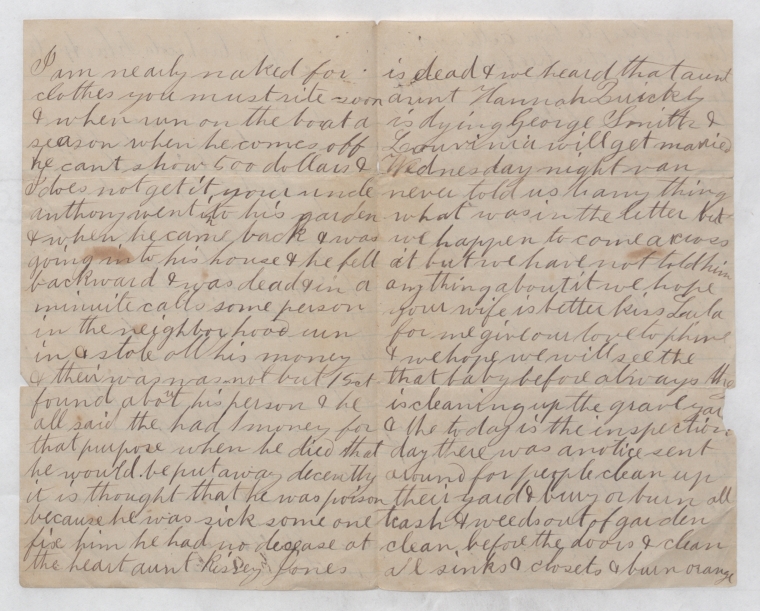 I am nearly naked for
clothes you must rite soon
& when run on the boat a
season when he comes off
he cant show 500 dollars &
I does not get it your uncle
anthony went in to his garden
& when he came back & was
going in to his house & he fell
backward & was dead in a
minuite calls some person
in the neighborhood run
in & stole all his money
& their was was not but 15ct
found about his person & he
all said the had money for
that purpose when he died that
he would be put away decently
it is thought that he was poison
because he was sick some one
fix him he had no decease at
the heart aunt Kissey Jones
is dead & we heard that aunt
aunt Hannah Quickly
is dying George Smith &
Louvinia will get maried
Wednesday night van
never told us hany thing
what was in the letter but
we happen to come across
it but we have not told him
any thing about it we hope
your wife is better kiss Lula
for me give our love to phine
& we hope we will see the
that baby before always the
is cleaning up the grave yar
& the to day is the inspection
day there was a notice sent
around for people clean up
their yard & bury or burn all
trash & weeds out of garden
clean before the doors & clean
all sinks & closets & burn orange